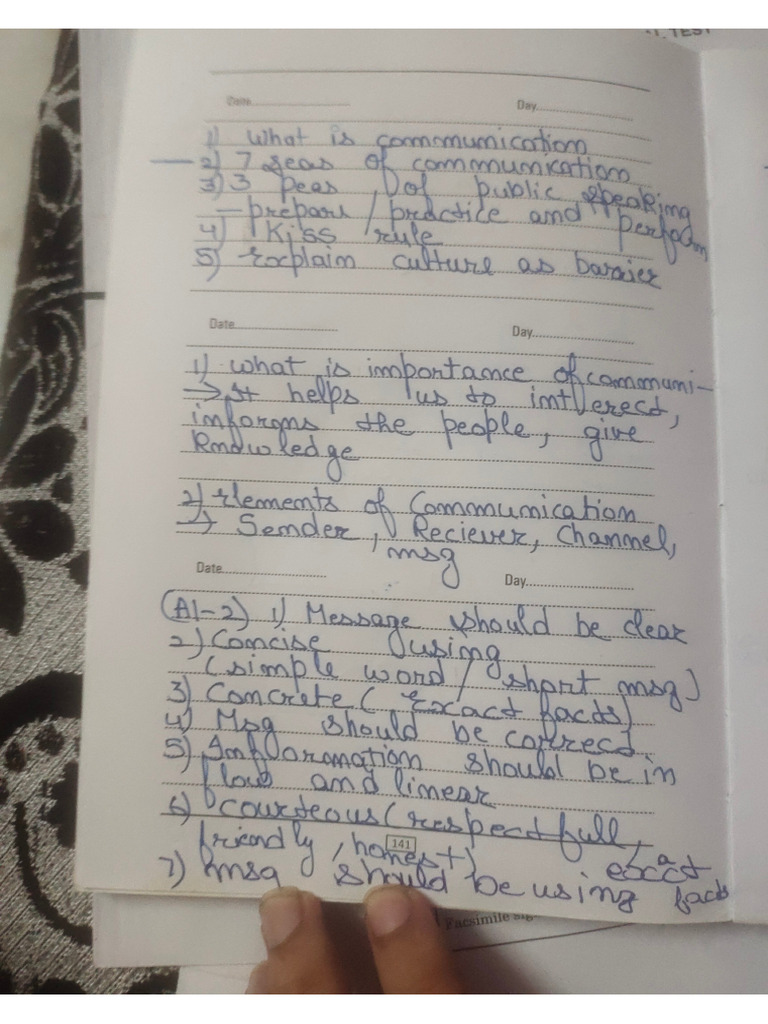 1. TEST
Date
Day
1) What is commmunication
2) 7 seas of commmunication
3) 3 peas of public speaking
- prepare / practice and perform
4) Kiss rule
5) Explain culture as barrier
Date
Day
1) What is importance of communi-
→ It helps us to intterect,
informs the people, give
knowledge
2) Elements of Communication
→ Sender, Reciever, Channel,
msg
Date
Day
(A1-2) 1) Message should be clear
2) Concise using
(simple word / short msg)
3) Concrete ( Exact facts)
4) Msg should be correct
5) Information should be in
flow and linear
6) Courteous (respectfull,
friendly, honest)
141
7) msg should be using exact facts
Facsimile